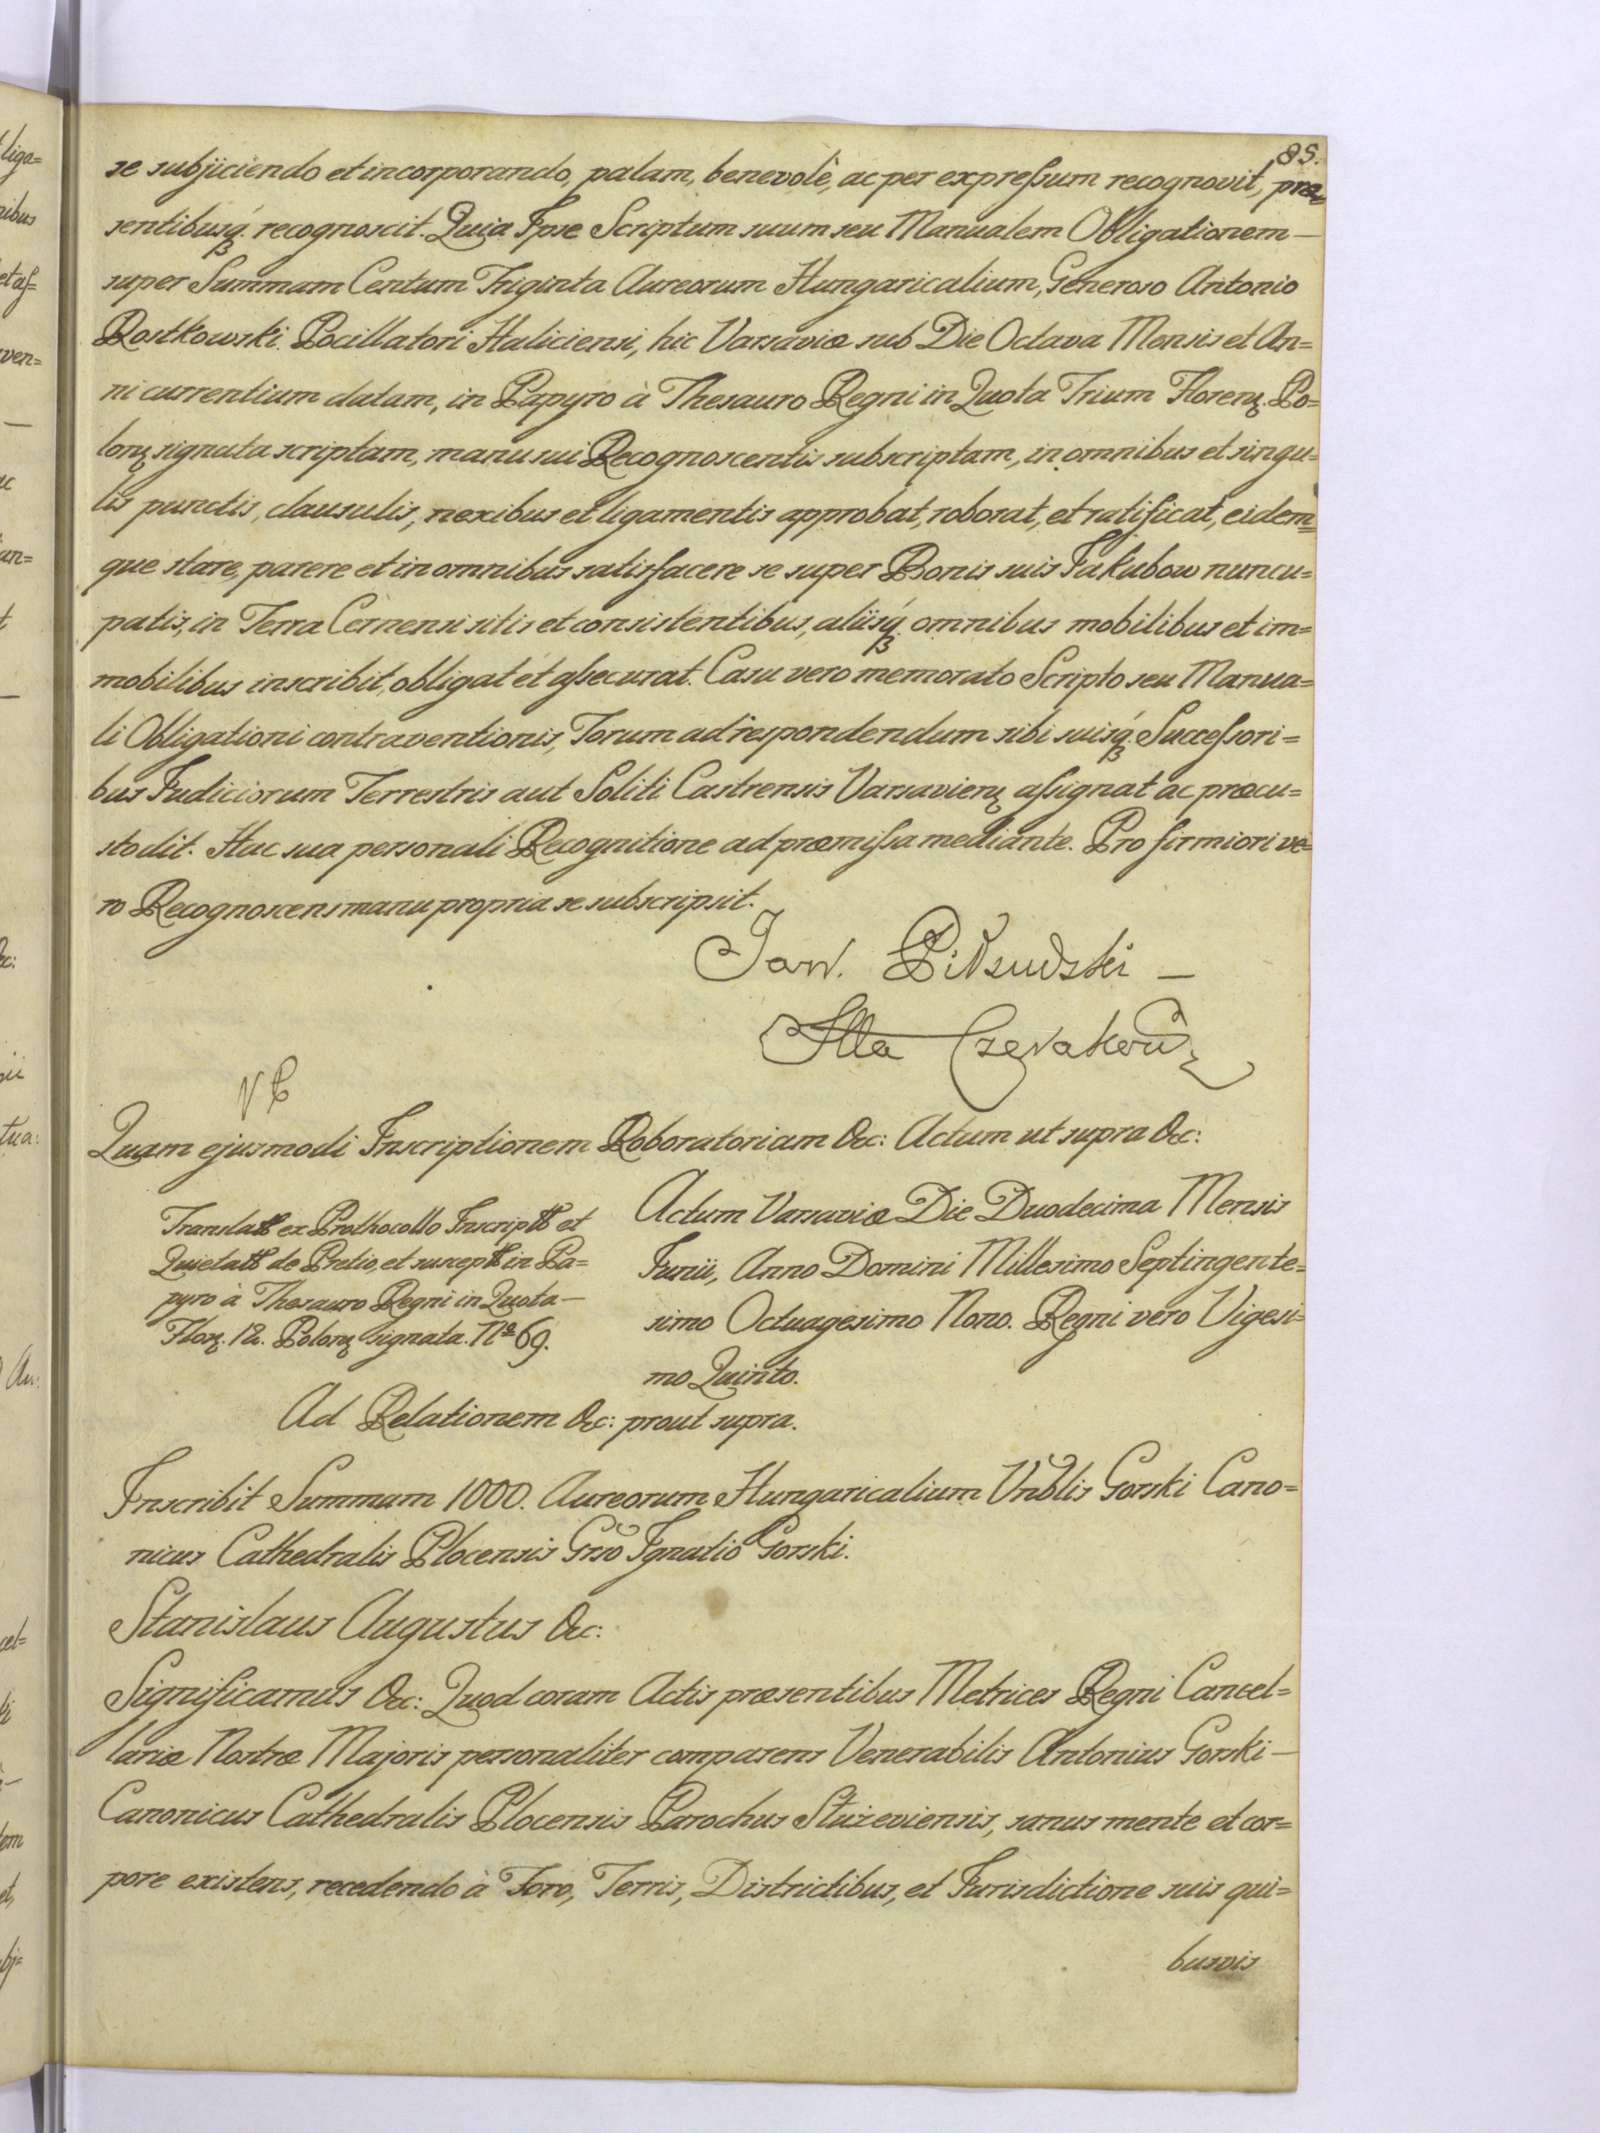 85.
se subjiciendo et incorporando, palam, benevolè, ac per expreſsum recognovit, præ=
sentibusq́ recognoscit. Quia Ipse Scriptum suum seu Manualem Obligationem —
super Summam Centum Triginta Aureorum Hungaricalium, Generoso Antonio
Rostkowski Pocillatori Haliciensi, hic Varsaviæ sub Die Octava Mensis et An=
ni currentium datam, in Papyro à Thesauro Regni in Quota Trium Florenꝫ Po=
lonꝫ signata scriptam, manu sui Recognoscentis subscriptam, in omnibus et singu=
lis punctis, clausulis, nexibus et ligamentis approbat, roborat, et ratificat, eidem=
que stare, parere et in omnibus satisfacere se super Bonis suis Jakubow nuncu=
patis, in Terra Cernensi sitis et consistentibus, aliisq́ omnibus mobilibus et im=
mobilibus inscribit, obligat et aſsecurat. Casu vero memorato Scripto seu Manua=
li Obligationi contraventionis, Forum ad respondendum sibi suisq́ Succeſsori=
bus Judiciorum Terrestris aut Soliti Castrensis Varsavienꝫ aſsignat ac præcu=
stodit. Hac sua personali Recognitione ad præmiſsa mediante. Pro firmiori ve=
ro Recognoscens manu propria se subscripsit.
Jan.
Quam ejusmodi Inscriptionem Roboratoriam &c: Actum ut supra &c:
Translatt ex Prothocollo Inscriptt et
Quietatt de Pretio, et susceptt in Pa=
pyro à Thesauro Regni in Quota —
Florꝫ. 12. Polonꝫ signata. Nº 69.
Actum Varsaviæ Die Duodecima Mensis
Junii, Anno Domini Millesimo Septingente=
simo Octuagesimo Nono. Regni vero Vigesi=
mo Quinto.
Ad Relationem &c: prout supra.
Inscribit Summam 1000. Aureorum Hungaricalium Vnblis Gorski Cano=
nicus Cathedralis Plocensis Grso Ignatio Gorski.
Stanislaus Augustus &c:
Significamus &c: Quod coram Actis præsentibus Metrices Regni Cancel=
lariæ Nostræ Majoris personaliter comparens Venerabilis Antonius Gorski —
Canonicus Cathedralis Plocensis Parochus Stużeviensis, sanus mente et cor=
pore existens, recedendo à Foro, Terris, Districtibus, et Jurisdictione suis qui=
busvis